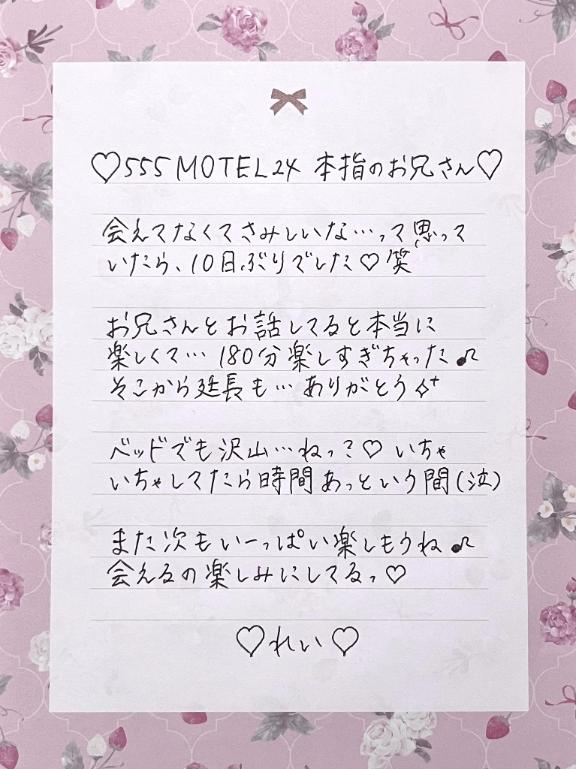 ♡555 MOTEL24 本指のお兄さん♡
会えてなくてさみしいな…って思って
いたら、10日ぶりでした♡笑
お兄さんとお話してると本当に
楽しくて… 180分楽しすぎちゃった♪
そこから延長も… ありがとう✧⁺
ベッドでも沢山…ねっ?♡ いちゃ
いちゃしてたら時間あっという間(泣)
また次もいーっぱい楽しもうね♪
会えるの楽しみにしてるっ♡
♡れい♡